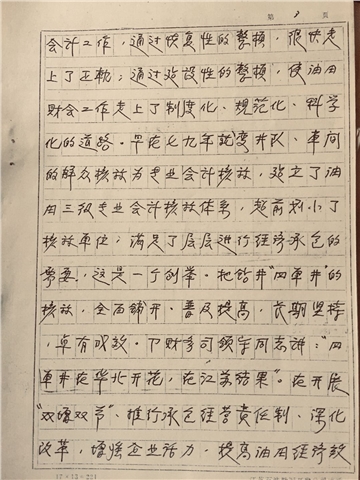 第 3 页
会计工作，通过恢复性的整顿，很快走
上了正轨；通过建设性的整顿，使油田
财会工作走上了制度化、规范化、科学
化的道路。早在七九年就变井队、车间
的群众核效为专业会计核效，建立了油
田三级专业会计核效体系，超前划小了
核效单位；满足了层层进行经济承包的
需要，这是一个创举。把钻井"四单井"的
核效，全面铺开、普及提高，长期坚持
，卓有成效。财务司领导同志讲："四
单井在华北开花，在江苏结果"。在开展
"双增双节"、推行承包经营责任制、深化
改革，增强企业活力，提高油田经济效